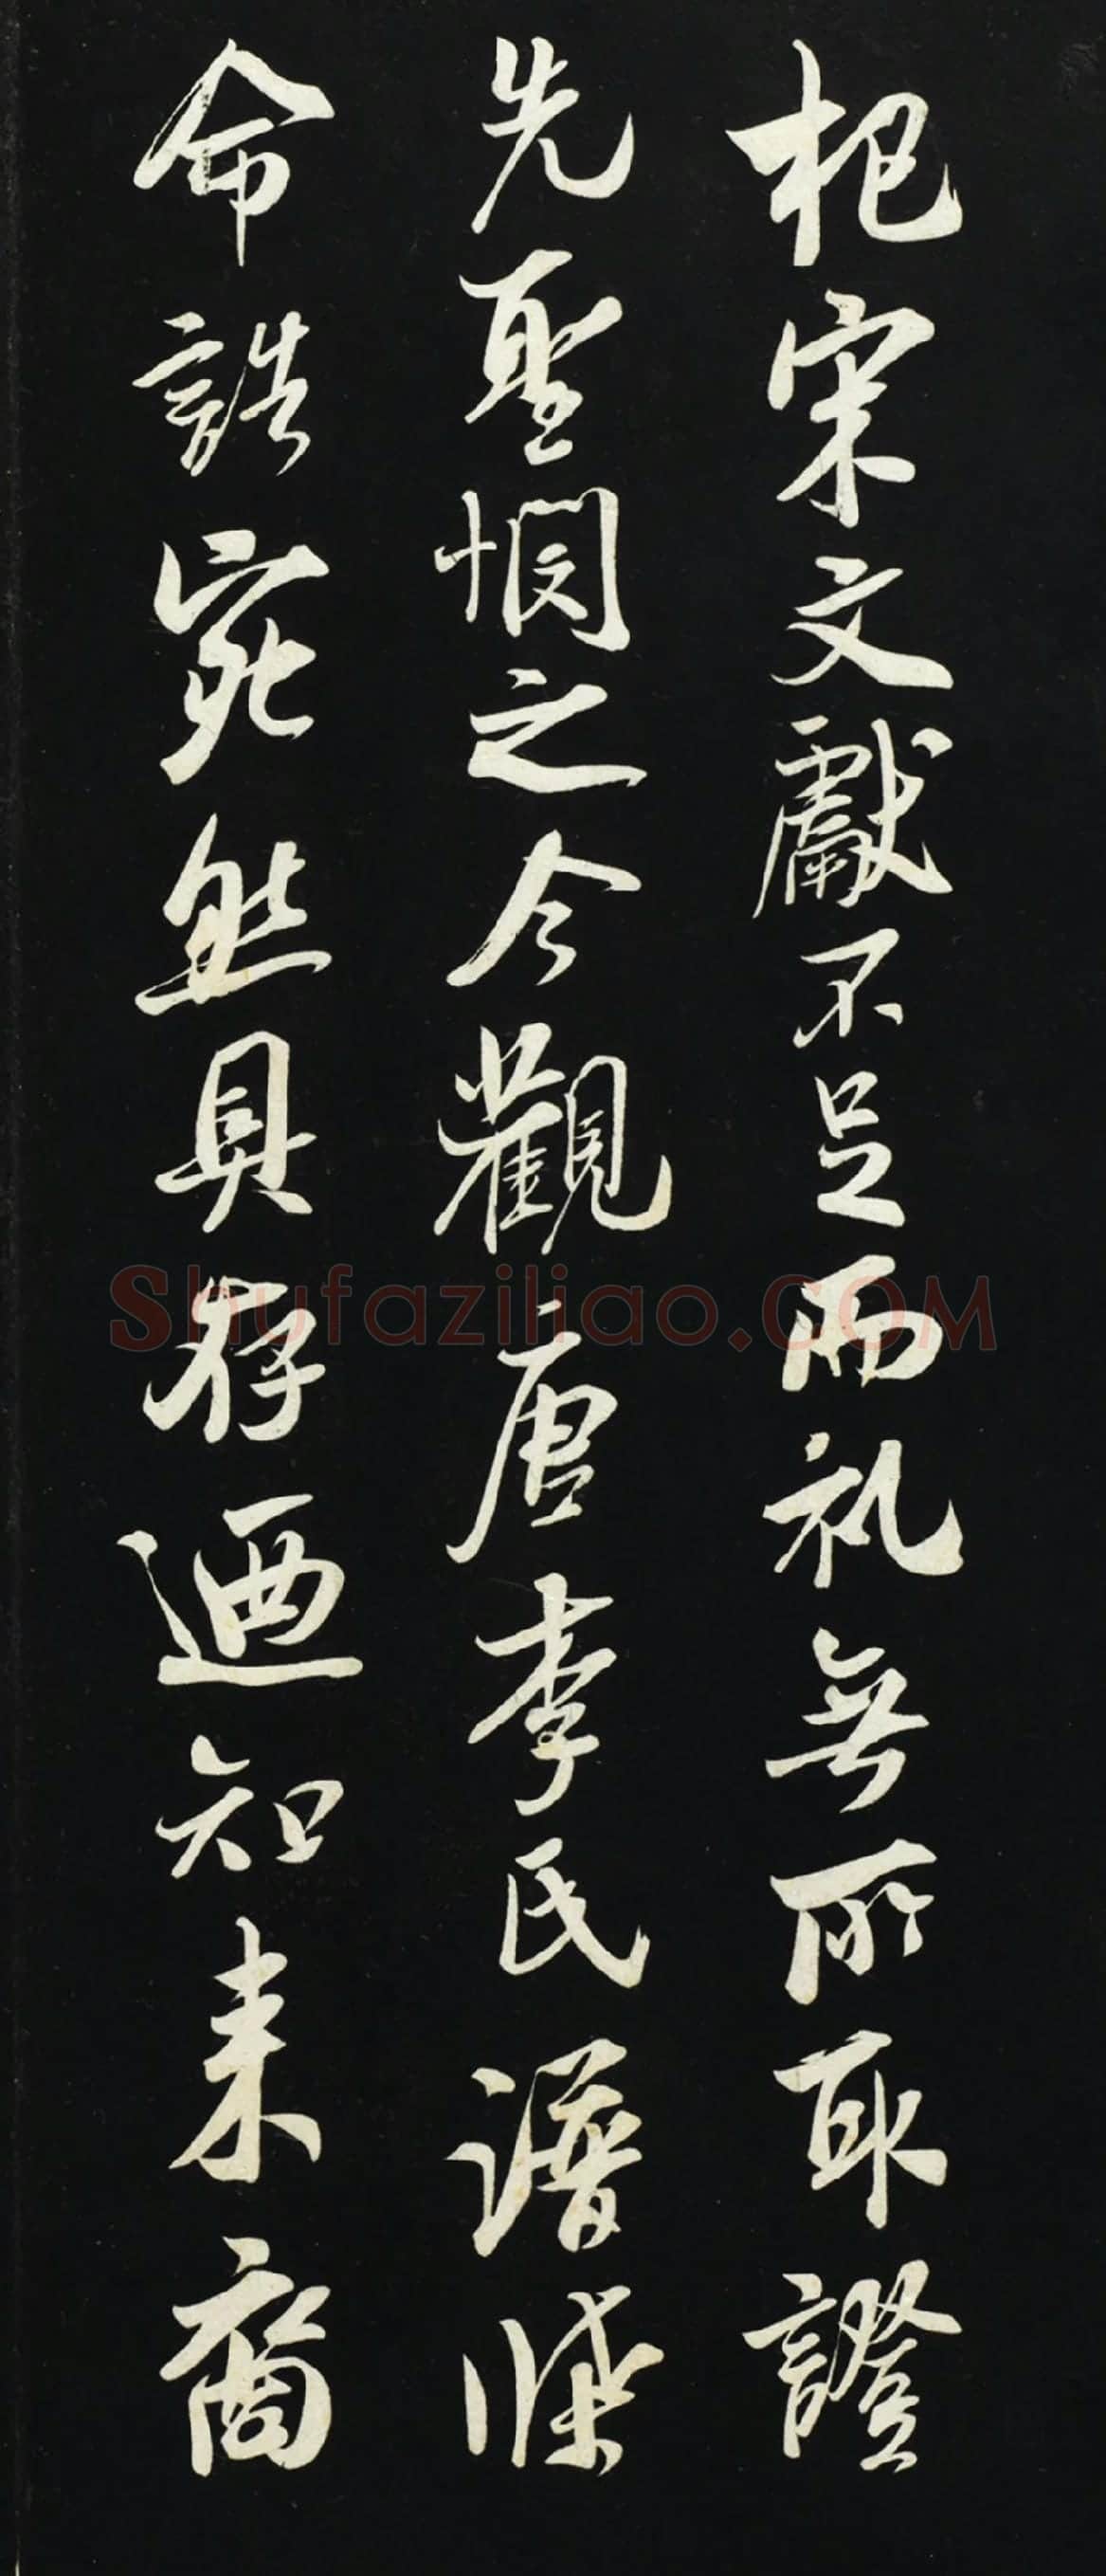 杞宋文獻不足而礼無所取證
先聖憫之今觀唐李氏譜牒
命誥宛然具存迺知来裔
Shufaziliao.COM